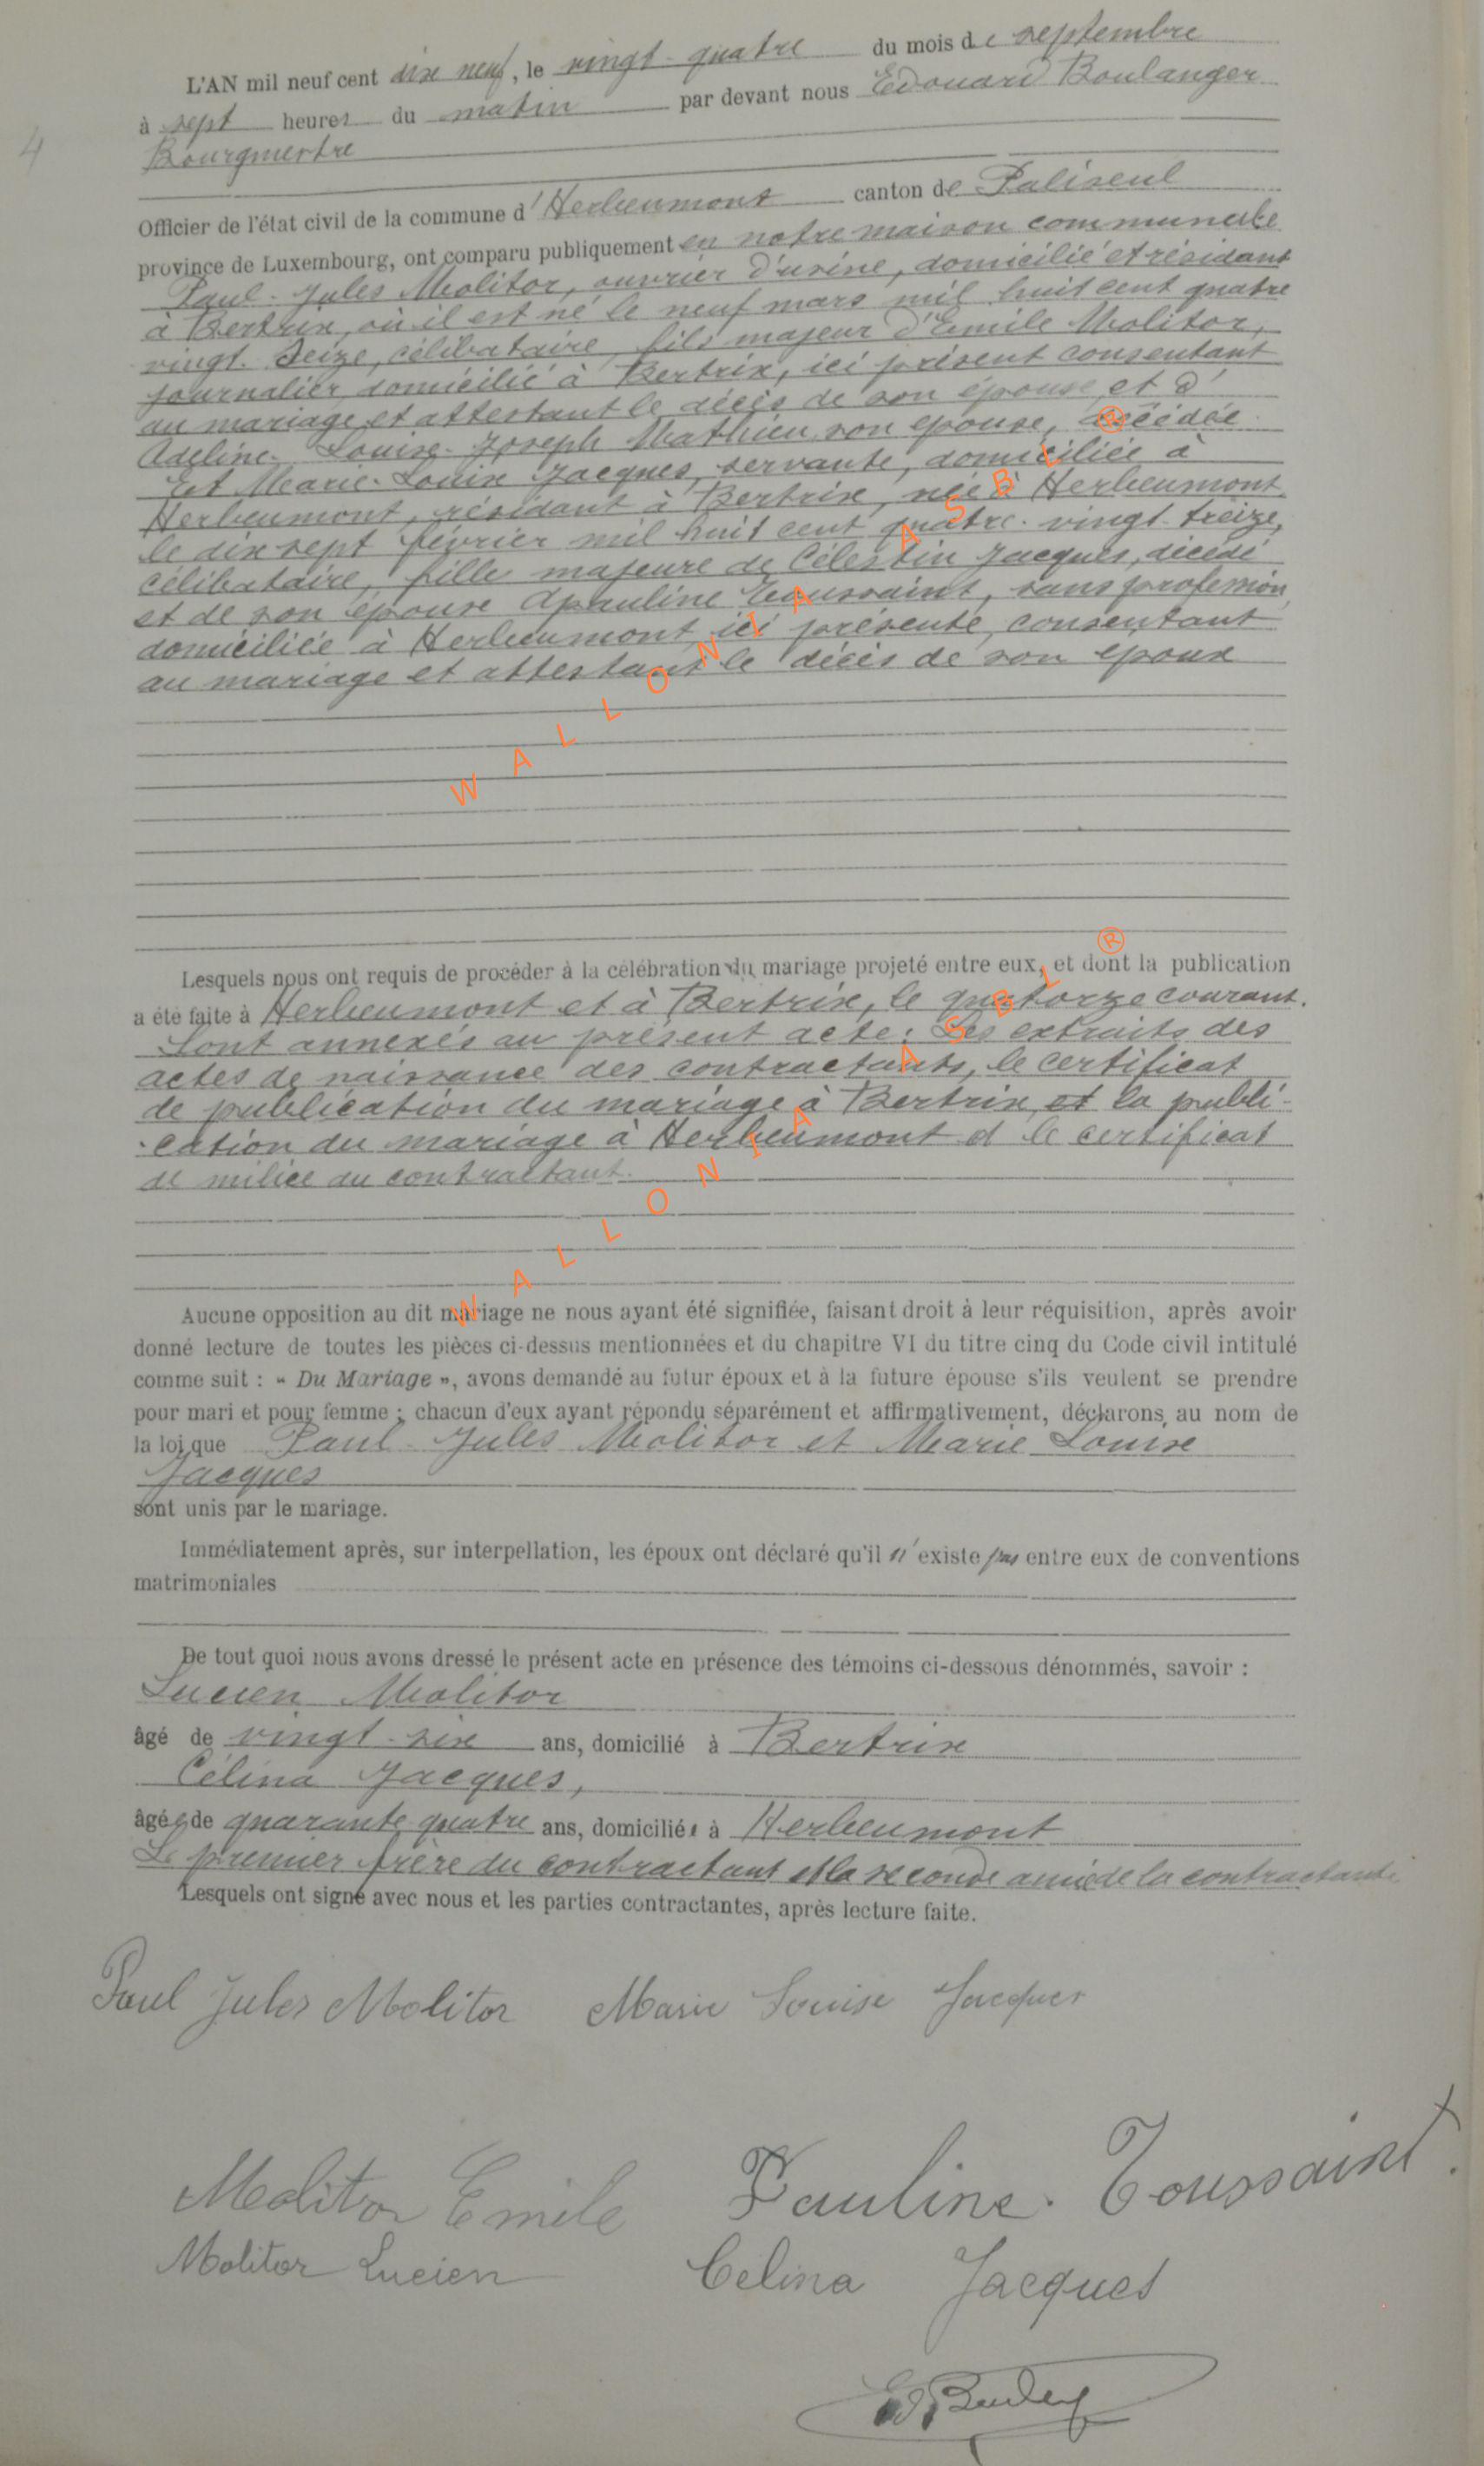 4
L'AN mil neuf cent dix neuf, le vingt-quatre du mois de septembre
à sept heures du matin par devant nous Edouard Boulanger
Bourgmestre
Officier de l'état civil de la commune d'Herbeumont canton de Paliseul
province de Luxembourg, ont comparu publiquement en notre maison communale
Paul-Jules Molitor, ouvrier d'usine, domicilié et résidant
à Bertrix, où il est né le neuf mars mil huit cent quatre
vingt-seize, célibataire, fils majeur d'Emile Molitor,
journalier, domicilié à Bertrix, ici présent consentant
au mariage et attestant le décès de son épouse, et d'
Adeline-Louise-Joseph Mathieu son épouse, décédée
Et Marie-Louise Jacques, servante, domiciliée à
Herbeumont, résidant à Bertrix, née à Herbeumont
le dix sept février mil huit cent quatre-vingt-treize,
célibataire, fille majeure de Célestin Jacques, décédé
et de son épouse Apauline Toussaint, sans profession,
domiciliée à Herbeumont, ici présente, consentant
au mariage et attestant le décès de son époux
WALLONIA ASBL ®
Lesquels nous ont requis de procéder à la célébration du mariage projeté entre eux, et dont la publication
a été faite à Herbeumont et à Bertrix, le quatorze courant.
Sont annexés au présent acte: Les extraits des
actes de naissance des contractants, le certificat
de publication du mariage à Bertrix, et la publi-
-cation du mariage à Herbeumont et le certificat
de milice du contractant.
WALLONIA ASBL ®
Aucune opposition au dit mariage ne nous ayant été signifiée, faisant droit à leur réquisition, après avoir
donné lecture de toutes les pièces ci-dessus mentionnées et du chapitre VI du titre cinq du Code civil intitulé
comme suit : « Du Mariage », avons demandé au futur époux et à la future épouse s'ils veulent se prendre
pour mari et pour femme ; chacun d'eux ayant répondu séparément et affirmativement, déclarons, au nom de
la loi que Paul-Jules Molitor et Marie Louise
Jacques
sont unis par le mariage.
Immédiatement après, sur interpellation, les époux ont déclaré qu'il n'existe pas entre eux de conventions
matrimoniales
De tout quoi nous avons dressé le présent acte en présence des témoins ci-dessous dénommés, savoir :
Lucien Molitor
âgé de vingt-six ans, domicilié à Bertrix
Célina Jacques,
âgée de quarante quatre ans, domiciliée à Herbeumont
Le premier frère du contractant et la seconde amie de la contractante
Lesquels ont signé avec nous et les parties contractantes, après lecture faite.
Paul Jules Molitor Marie Louise Jacques
Molitor Emile Pauline Toussaint.
Molitor Lucien Célina Jacques